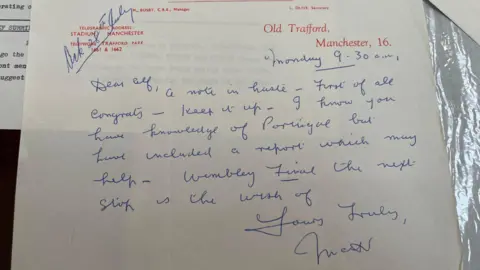 BUSBY, C.B.E., Manager
Secretary
TELEGRAPHIC ADDRESS:
STADIUM MANCHESTER
TELEPHONE: TRAFFORD PARK
1661 & 1662
Old Trafford,
Manchester, 16.
Monday 9-30 a.m,
Dear Alf, a note in haste - First of all
Congrats - keep it up - I know you
have knowledge of Portugal but
have included a report which may
help - Wembley Final the next
stop is the wish of
Yours Truly,
Matt